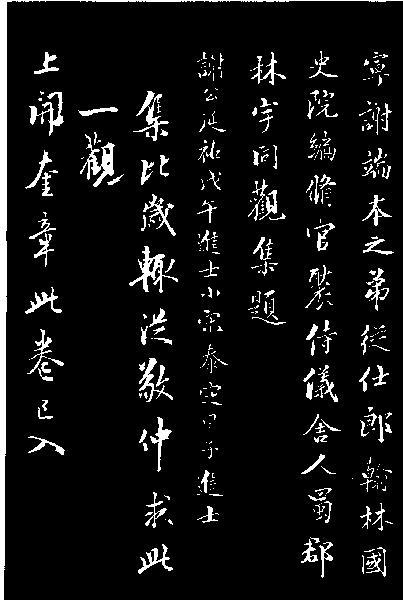 寧謝端木之弟從仕郎翰林國
史院編脩官裴侍儀舍人蜀郡
林宇同觀集題
謝公延祐戊午進士小宋泰定甲子進士
集比歲輙從敬仲求此
一觀
上開奎章此卷已入